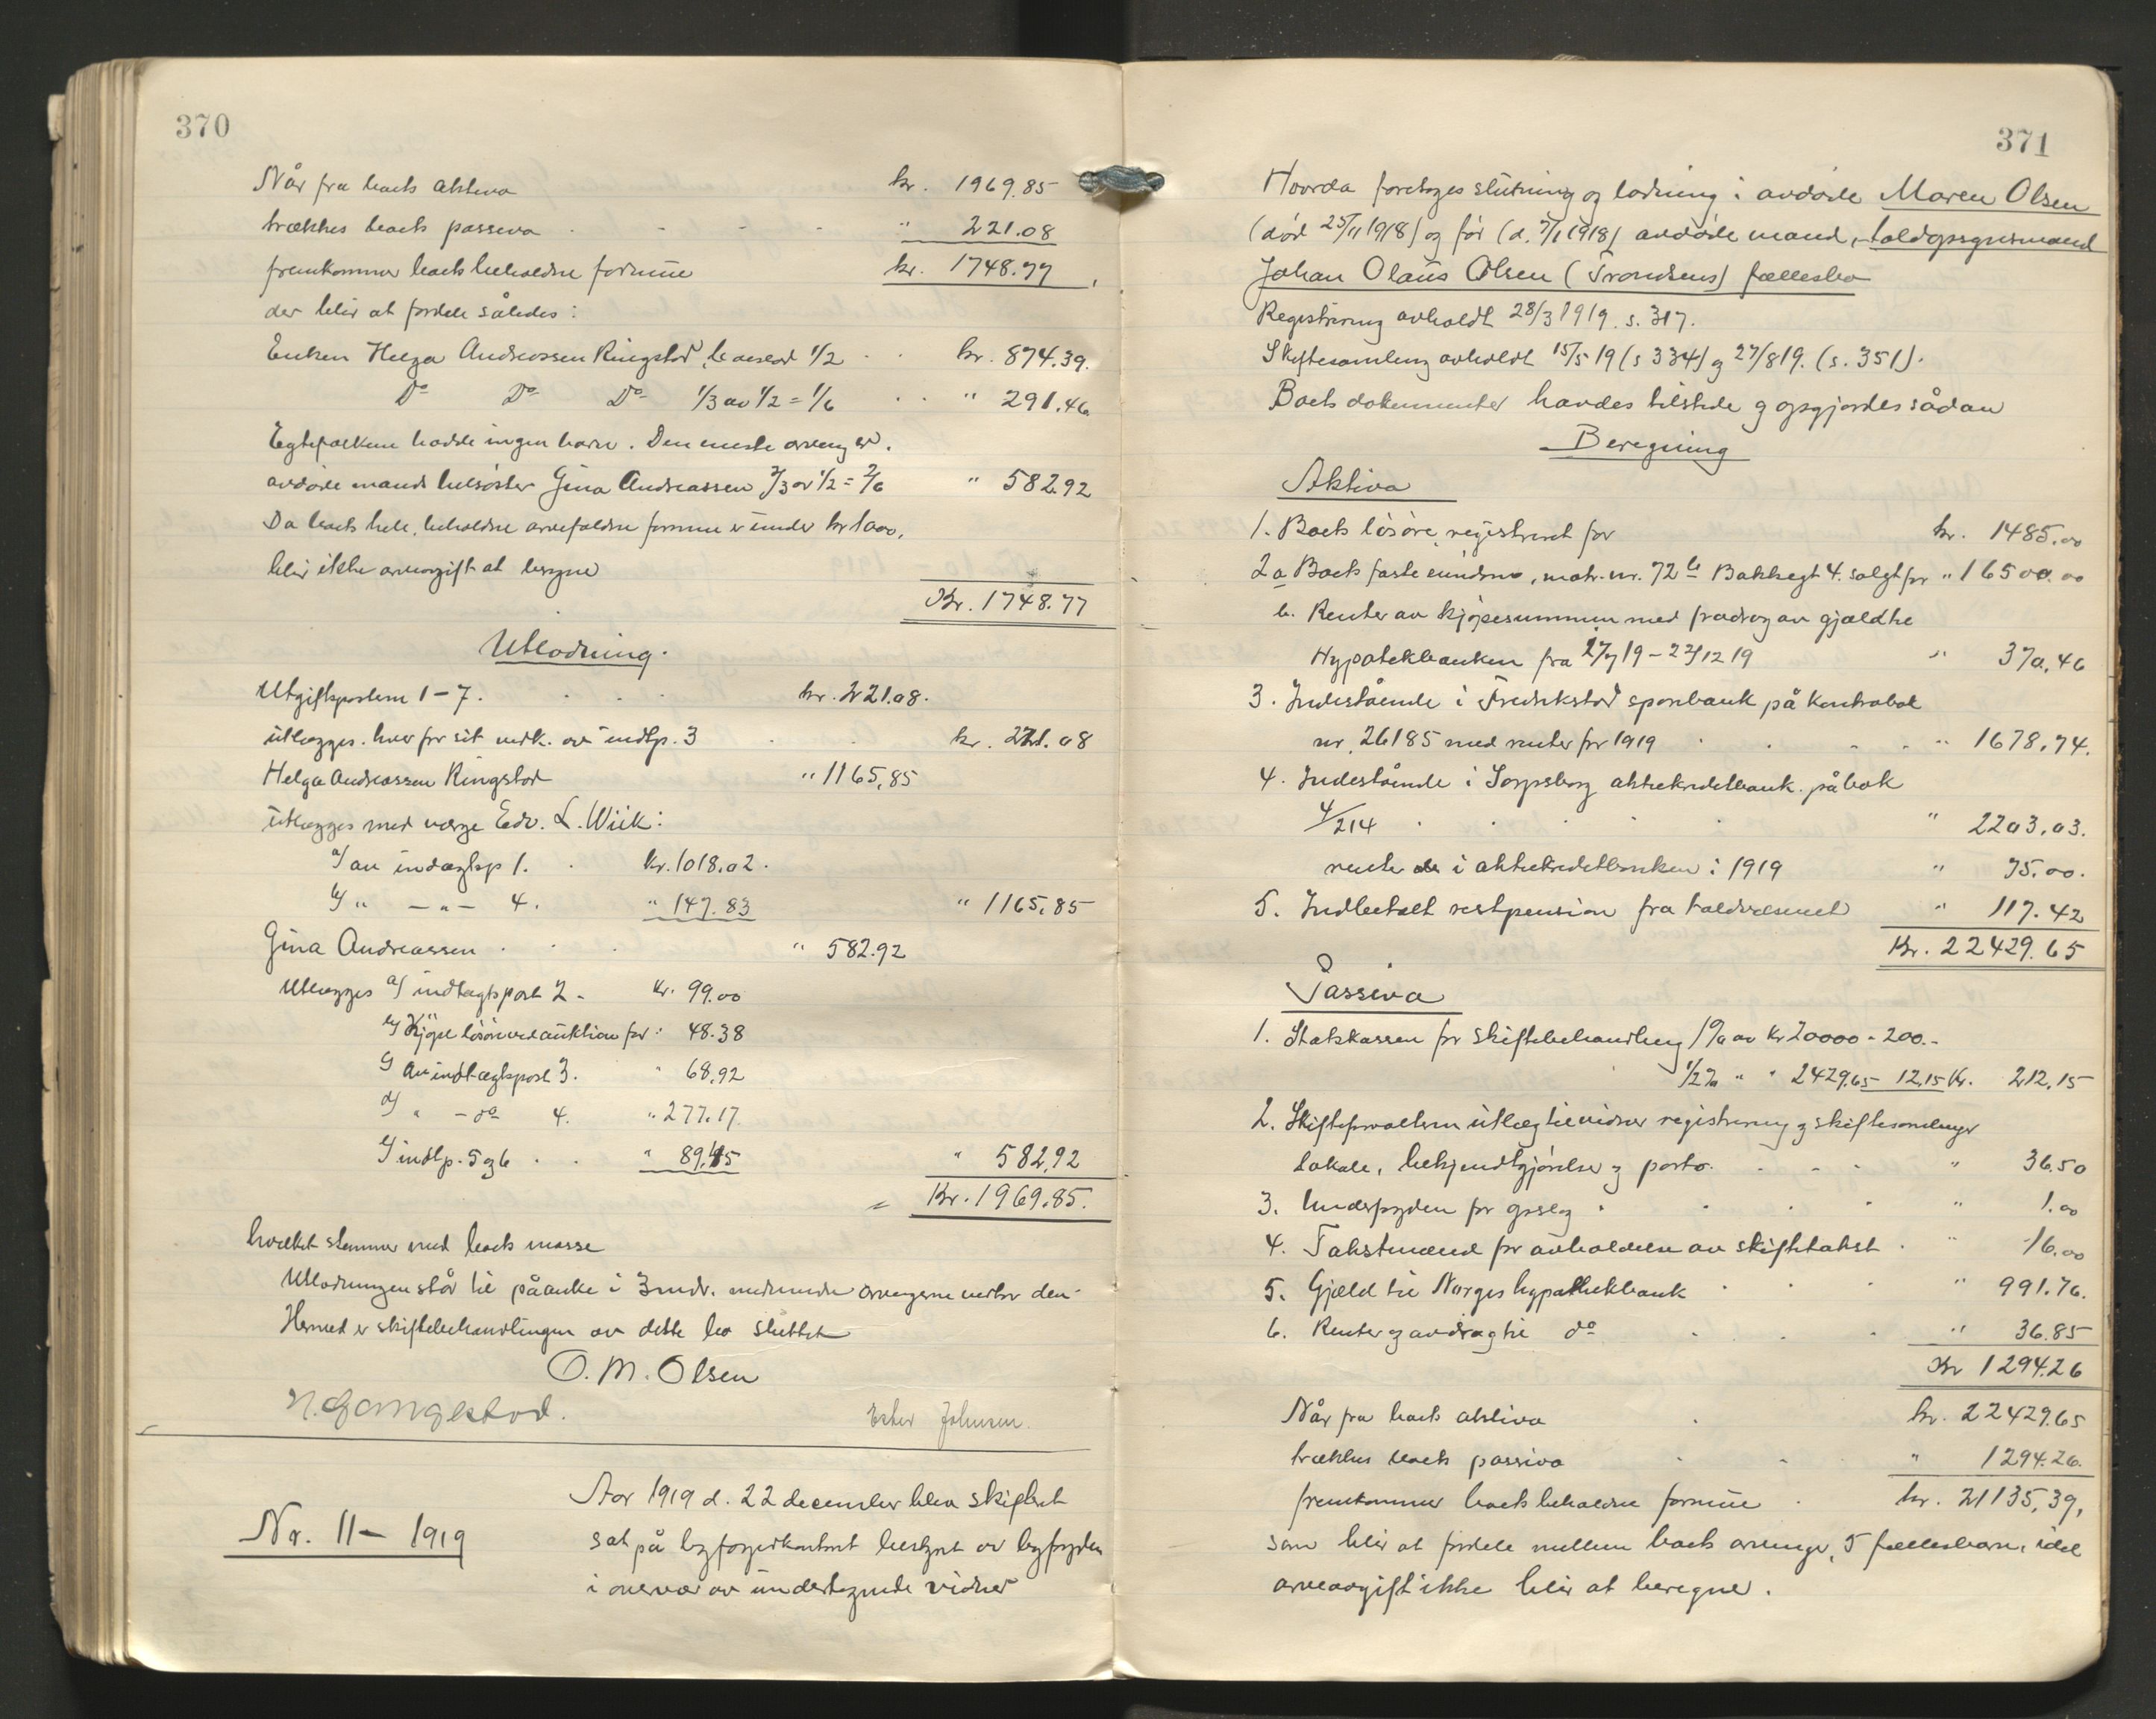 370
Når fra boets aktiva kr. 1969.85
trækkes boets passiva " 221.08
fremkommer boets beholdne formue kr. 1748.77,
der blir at fordele således:
Enken Helga Andreassen Ringstad, boeslod 1/2 kr. 874.39.
Do Do Do 1/3 av 1/2 = 1/6 " 291.46
Egtefolkene hadde ingen barn. Den eneste arving er
avdøde mands helsøster Gina Andreassen 2/3 av 1/2 = 2/6 " 582.92
Da boets hele beholdne arvefaldne formue er under kr 1000,
blir ikke arveavgift at beregne
Kr. 1748.77
Utlodning.
Utgiftsposterne 1-7. kr. 221.08.
utlægges hver for sit vedk. av indtp. 3 kr. 221.08
Helga Andreassen Ringstad " 1165,85
utlægges med værge Edv. L. Wiik:
a/ av indtægtsp 1. kr. 1018.02.
b/ " -"- 4. " 147.83 " 1165,85
Gina Andreassen " 582.92
Utlægges a/ indtægtspost 2 - kr. 99.00
b/ Kjøpt løsøre ved auktion for: 48.38
c/ Av indtægtspost 3. " 68,92
d/ " - do 4. " 277.17.
e/ indtp. 5 og 6 " 89,45 " 582,92
= Kr. 1969,85.
hvilket stemmer med boets masse
Utlodningen står til påanke i 3 mdr. medmindre arvingerne vedtar den.
Hermed er skiftebehandlingen av dette bo sluttet
O. M. Olsen
N. Gangestad. Ester Johnsen.
Nr. 11 - 1919
Aar 1919 d. 22 december blev skifteret
sat på byfogedkontoret bestyret av byfogden
i overvær av undertegnede vidner
371
Hvorda foretoges slutning og lodning i avdøde Maren Olsen
(død 25/11 1918) og før (d. 7/1 1918) avdøde mand, toldopsynsmand
Johan Olaus Olsen (Trondsens) fællesbo
Registrering avholdt 28/3 1919 s. 317.
Skiftesamling avholdt 15/5 19 (s 334) og 27/8 19. (s. 351).
Boets dokumenter havdes tilstede og opgjordes sådan
Beregning
Aktiva
1. Boets løsøre, registreret for kr. 1485.00
2 a Boets faste eiendom, matr. nr. 72 b Bakkegt 4. solgt for " 16500.00
b. Renter av kjøpesummen med fradrag av gjæld til
Hypotekbanken fra 27/7 19 - 22/12 19 " 370,46
3. Indestående i Fredrikstad sparebank på kontrabok
nr. 26185 med renter for 1919 " 1678,74.
4. Indestående i Sarpsborg aktiekreditbank på bok
4/214 " 2203,03.
renter i aktiekreditbanken i 1919 " 75.00.
5. Indbetalt restpension fra toldvæsenet " 117.42
Kr. 22429.65
Passiva
1. Statskassen for skiftebehandling 1% av kr 20000 = 200.-
1/2% " " 2429.65 12,15 Kr. 212,15
2. Skifteforvalteren utlæg til vidner registrering og skiftesamlinger
lokale, bekjendtgjørelse og porto. " 36.50
3. Underfogden for opslag " 1.00
4. Takstmænd for avholdelse av skiftetakst " 16.00
5. Gjæld til Norges hypothekbank " 991.76.
6. Renter og avdrag til do " 36.85
Kr 1294.26
Når fra boets aktiva kr. 22429.65
trækkes boets passiva " 1294.26.
fremkommer boets beholdne formue kr. 21135,39,
som blir at fordele mellem boets arvinger, 5 fællesbarn, idet
arveavgift ikke blir at beregne.